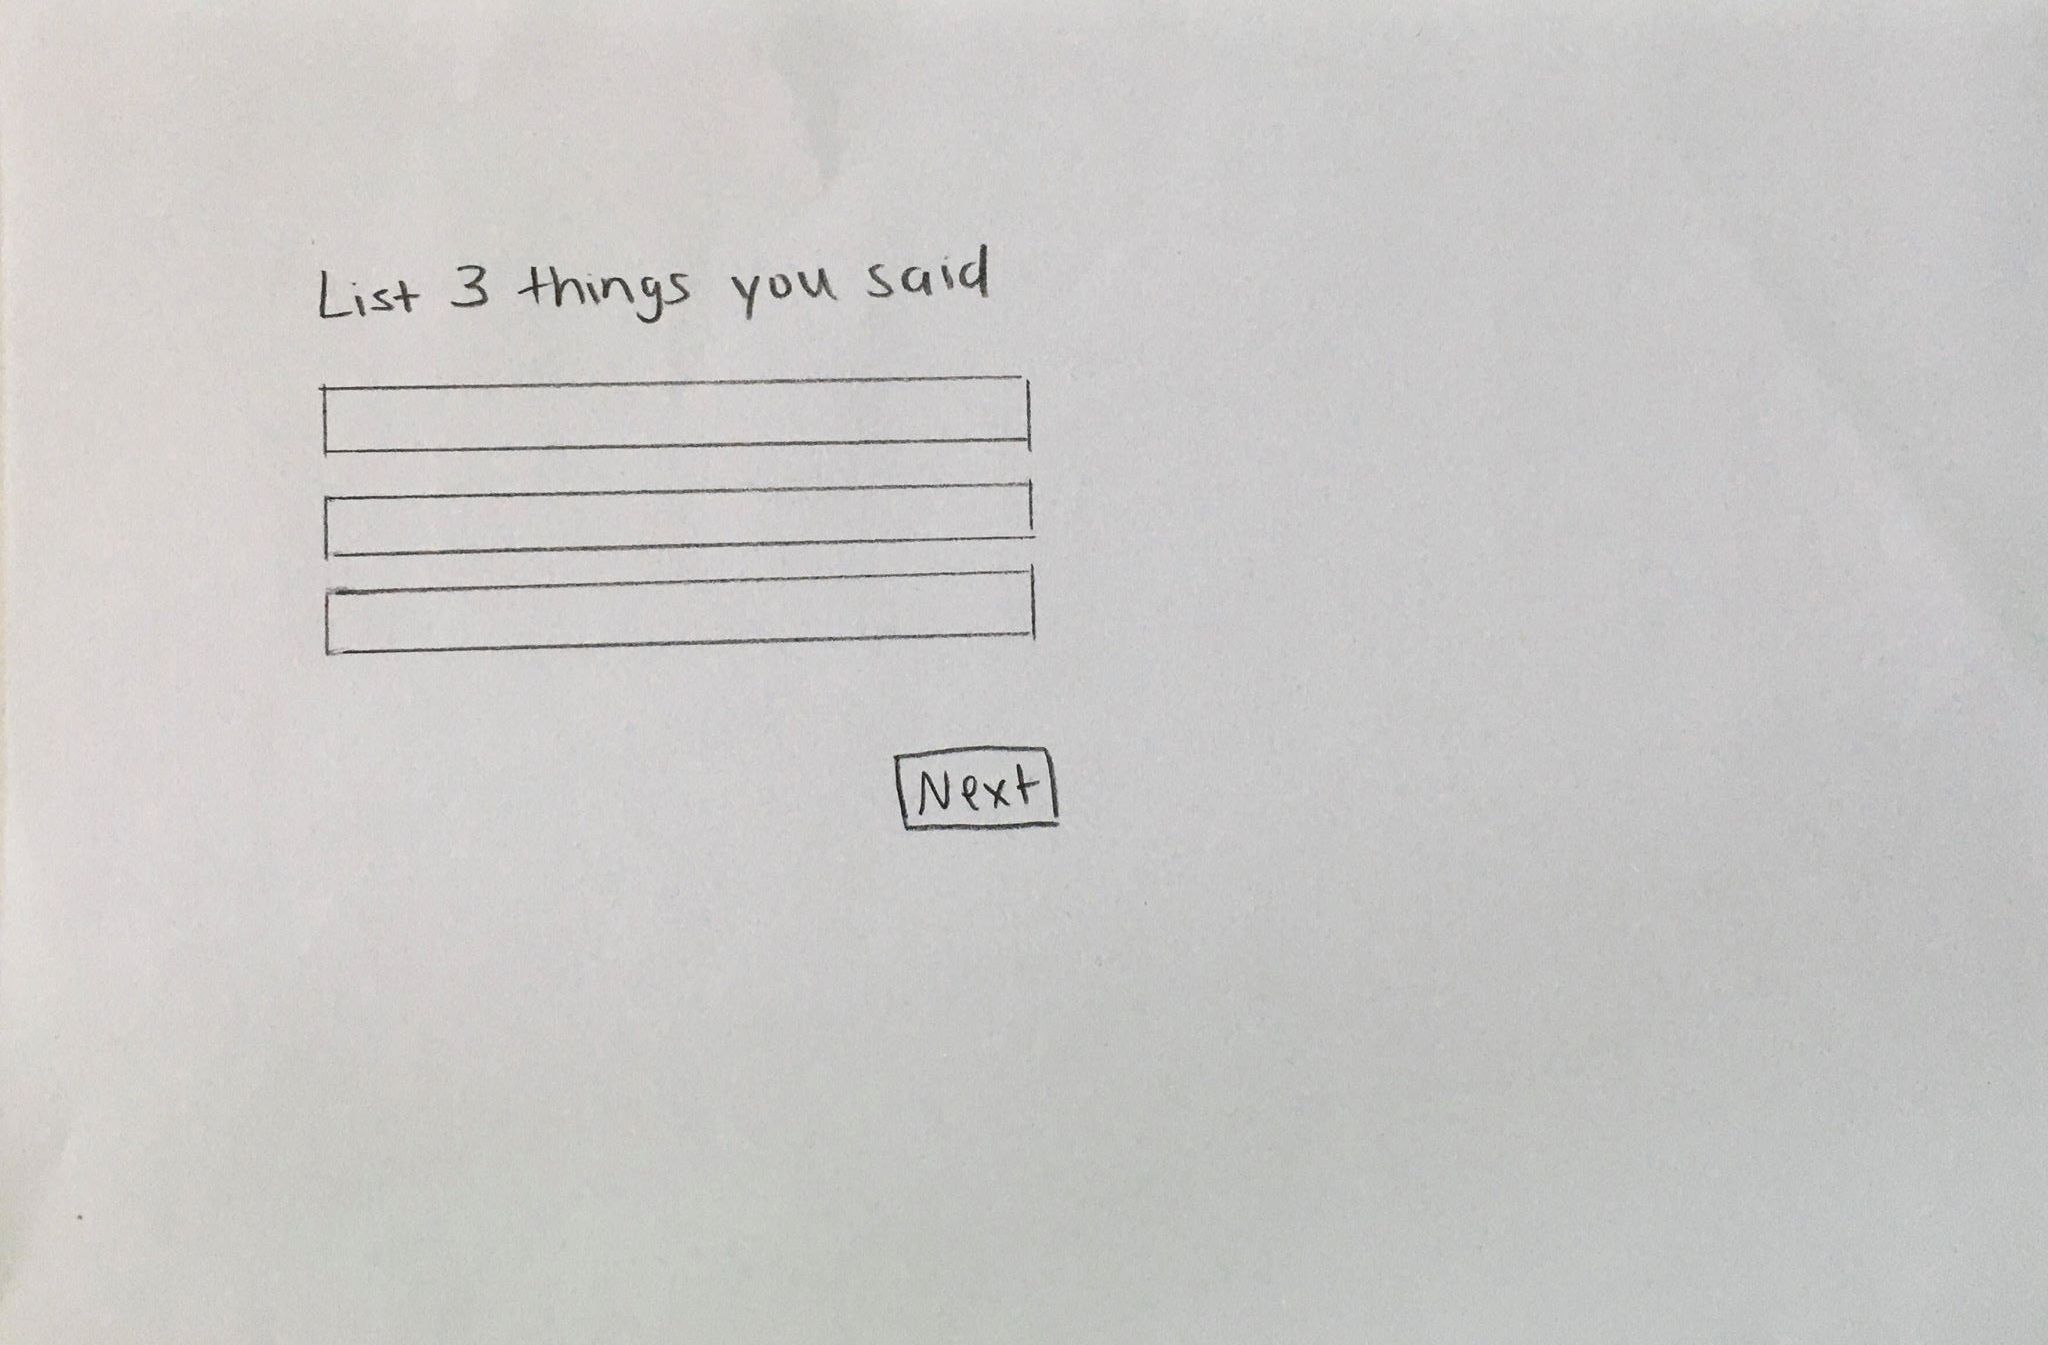 List 3 things you said
Next